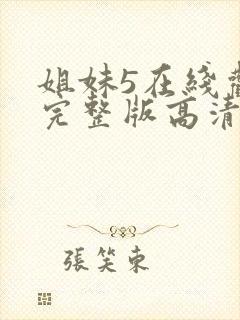 姐妹5在綫觀
完整版高清
張笑東